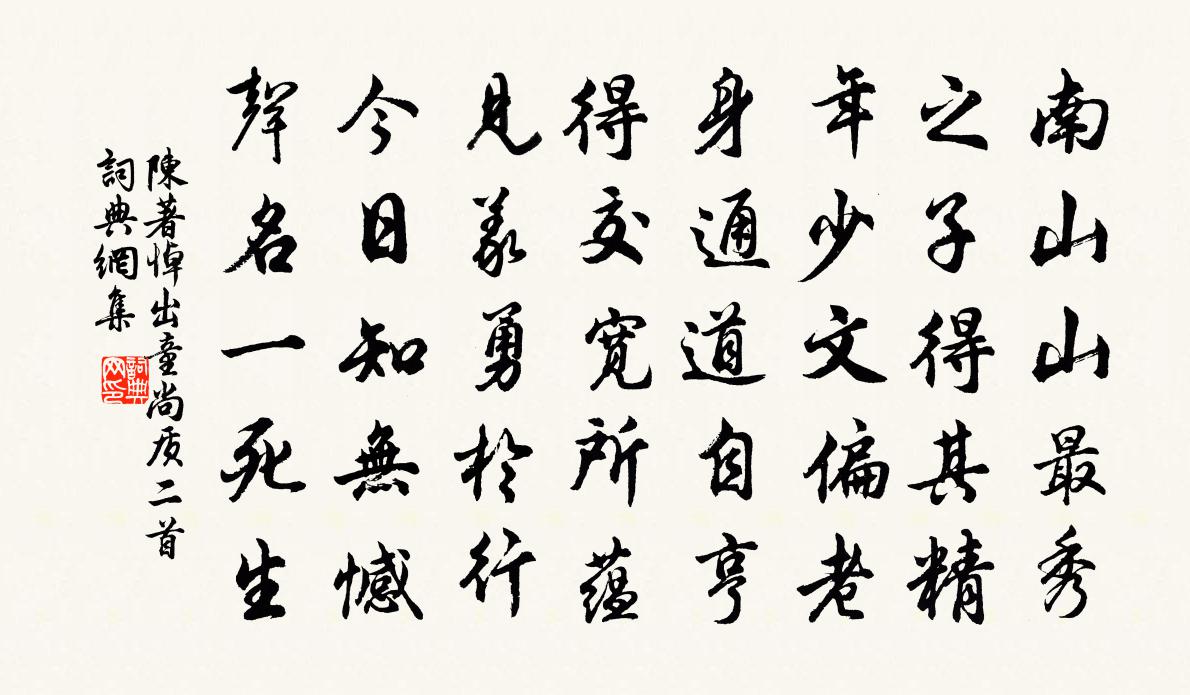 南山山最秀
之子得其精
年少文偏老
身通道自亨
得交寬所蘊
見義勇於行
今日知無憾
聲名一死生
陳著悼出童尚质二首
詞典網集
詞典
网印